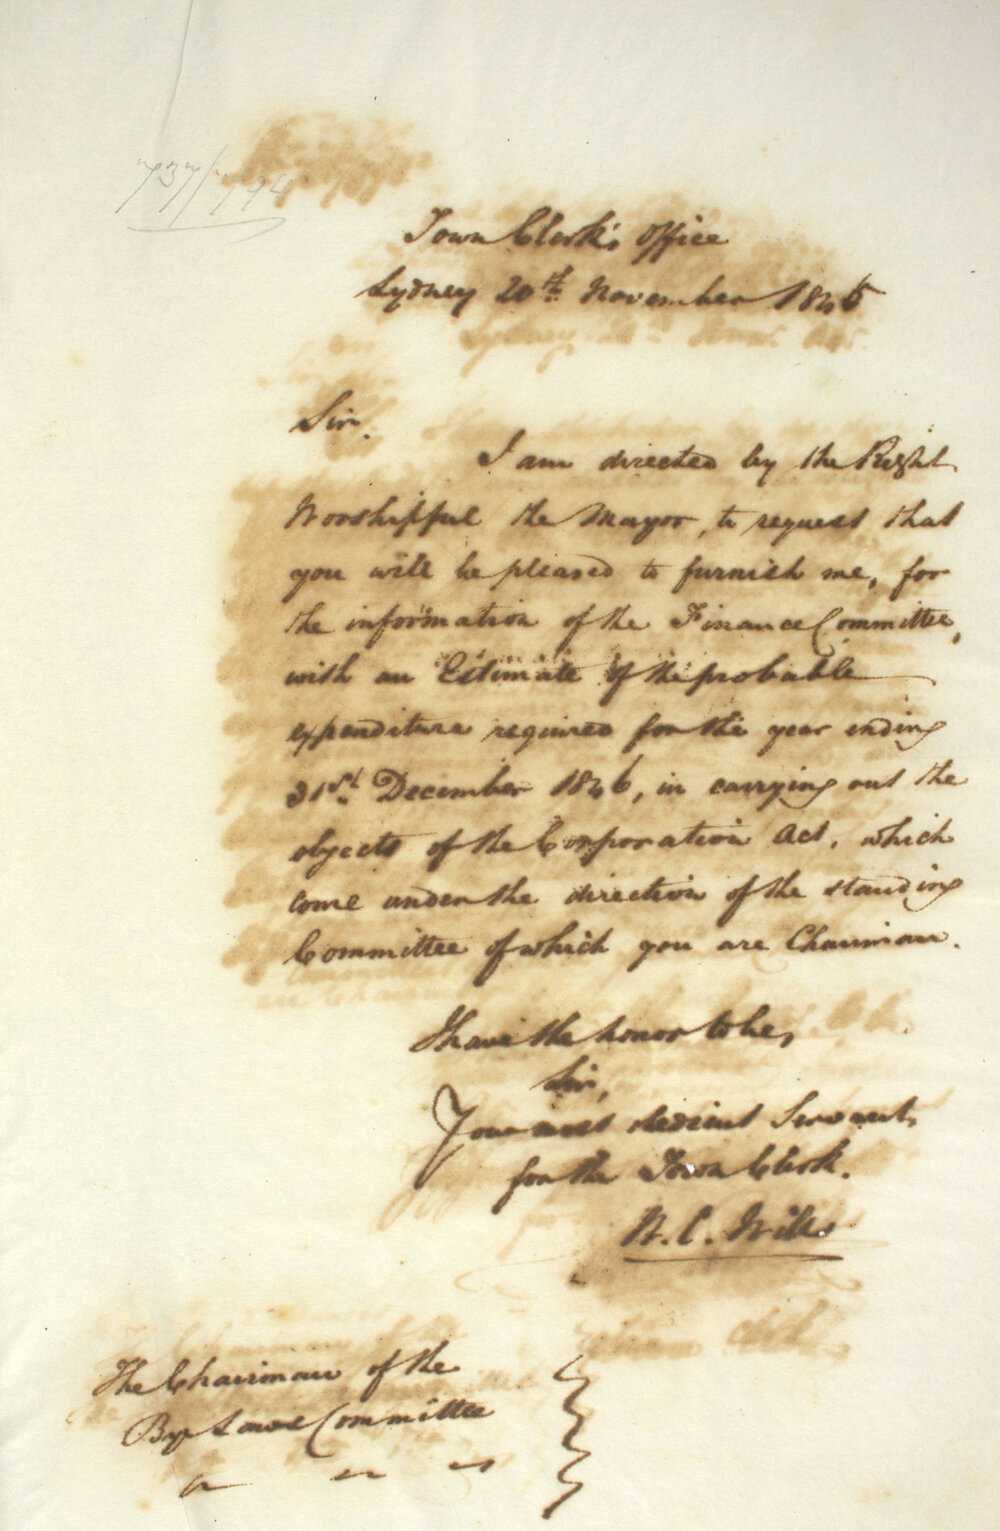 Town Clerk's Office
Sydney 20th November 1845
Sir,
I am directed by the Right
Worshipful the Mayor, to request that
you will be pleased to furnish me, for
the information of the Finance Committee,
with an Estimate of the probable
expenditure required for the year ending
31st December 1846, in carrying out the
objects of the Corporation Act, which
come under the direction of the standing
Committee of which you are Chairman.
I have the honor to be,
Sir,
Your most obedient Servant,
for the Town Clerk.
W. C. Wills
The Chairman of the
Bye Laws Committee